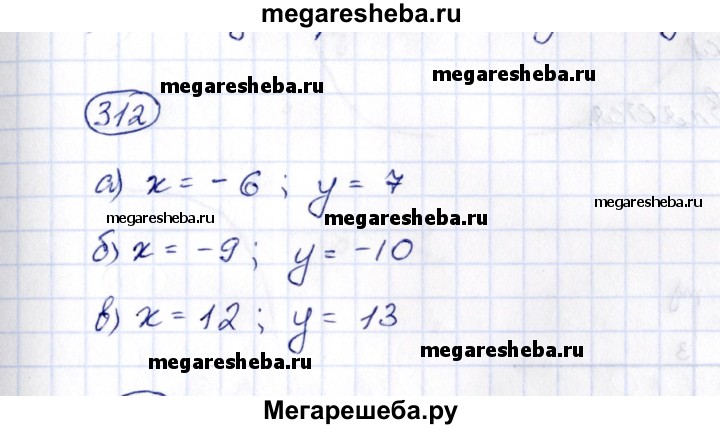 megaresheba.ru
megaresheba.ru
megaresheba.ru
312
а) x = - 6 ; y = 7
megaresheba.ru
megaresheba.ru
megaresheba.ru
б) x = - 9 ; y = -10
в) x = 12 ; y = 13
megaresheba.ru
megaresheba.ru
Мегарешеба.ру